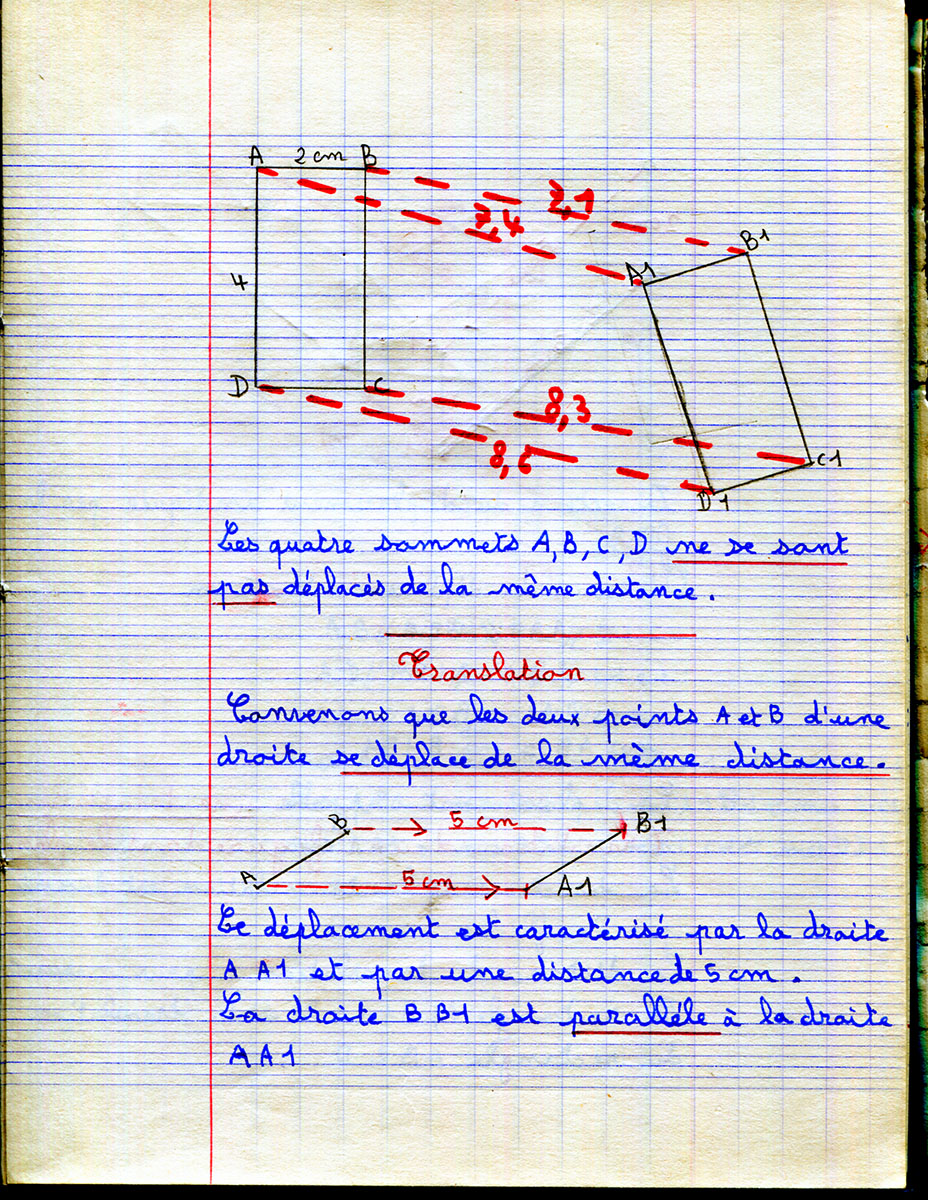 A 2 cm B
7,1
7,4
B1
A1
4
D C
8,3
8,6
C1
D1
Les quatre sommets A, B, C, D ne se sont
pas déplacés de la même distance.
Translation
Convenons que les deux points A et B d'une
droite se déplace de la même distance.
B 5 cm B1
A 5 cm A1
Ce déplacement est caractérisé par la droite
A A1 et par une distance de 5 cm.
La droite B B1 est paralléle à la droite
A A1